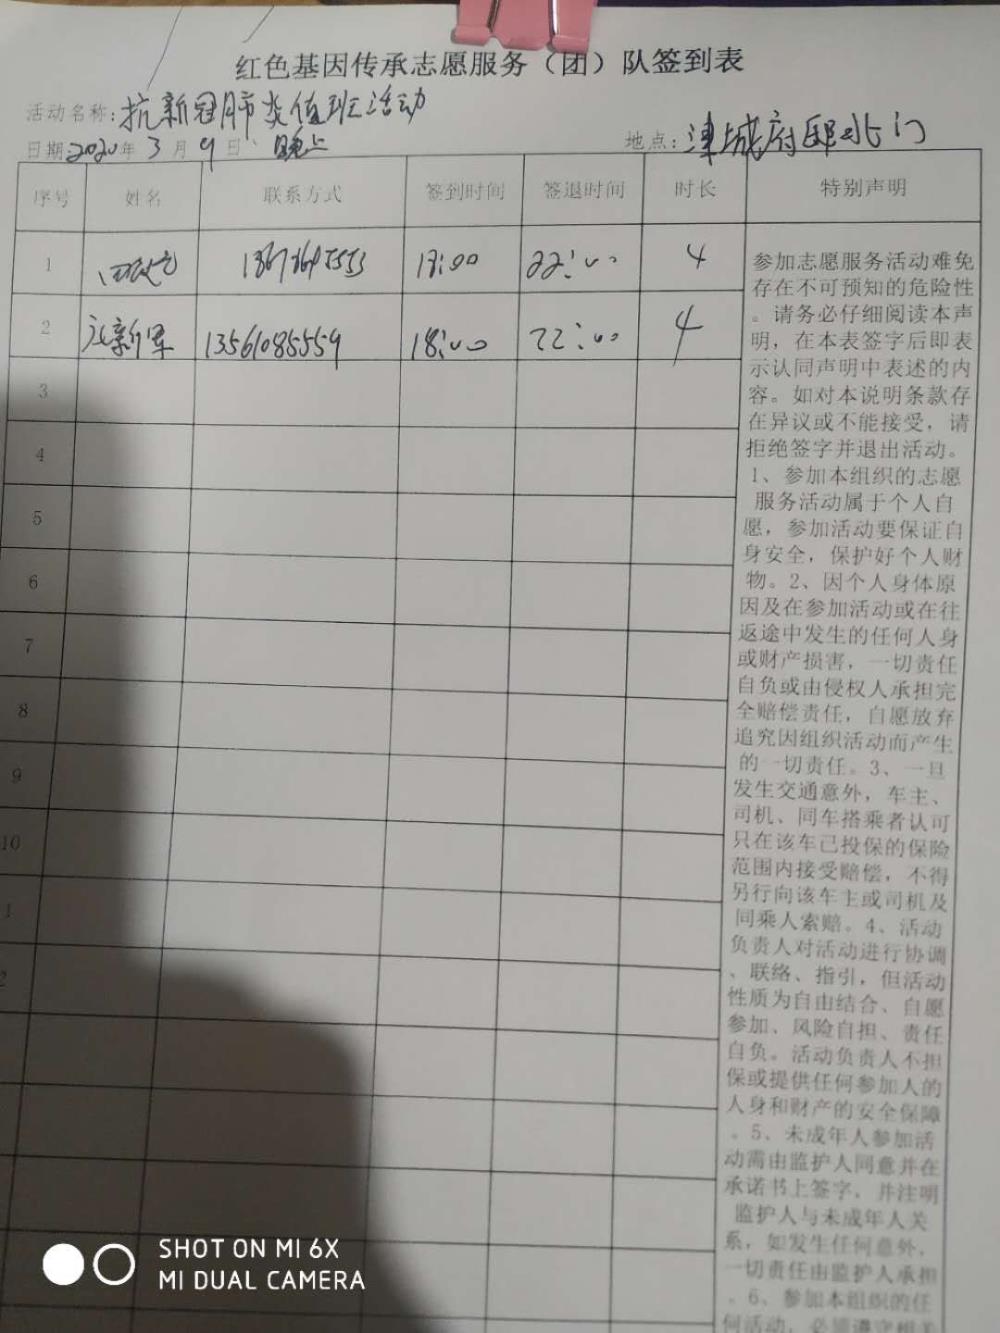 红色基因传承志愿服务（团）队签到表
活动名称：抗新冠肺炎值班活动
日期2020年3月9日、晚上 地点：津城府邸北门
序号 姓名 联系方式 签到时间 签退时间 时长 特别声明
1 18:00 22:00 4
2 新军 13561085559 18:00 22:00 4
3
4
5
6
7
8
9
10
1
2
参加志愿服务活动难免
存在不可预知的危险性
。请务必仔细阅读本声
明，在本表签字后即表
示认同声明中表述的内
容。如对本说明条款存
在异议或不能接受，请
拒绝签字并退出活动。
1、参加本组织的志愿
服务活动属于个人自
愿，参加活动要保证自
身安全，保护好个人财
物。2、因个人身体原
因及在参加活动或在往
返途中发生的任何人身
或财产损害，一切责任
自负或由侵权人承担完
全赔偿责任，自愿放弃
追究因组织活动而产生
的一切责任。3、一旦
发生交通意外，车主、
司机、同车搭乘者认可
只在该车已投保的保险
范围内接受赔偿，不得
另行向该车主或司机及
同乘人索赔。4、活动
负责人对活动进行协调
、联络、指引，但活动
性质为自由结合、自愿
参加、风险自担、责任
自负。活动负责人不担
保或提供任何参加人的
人身和财产的安全保障
。5、未成年人参加活
动需由监护人同意并在
承诺书上签字，并注明
监护人与未成年人关
系，如发生任何意外，
一切责任由监护人承担
。6、参加本组织的任
何活动，必须遵守相关
SHOT ON MI 6X
MI DUAL CAMERA